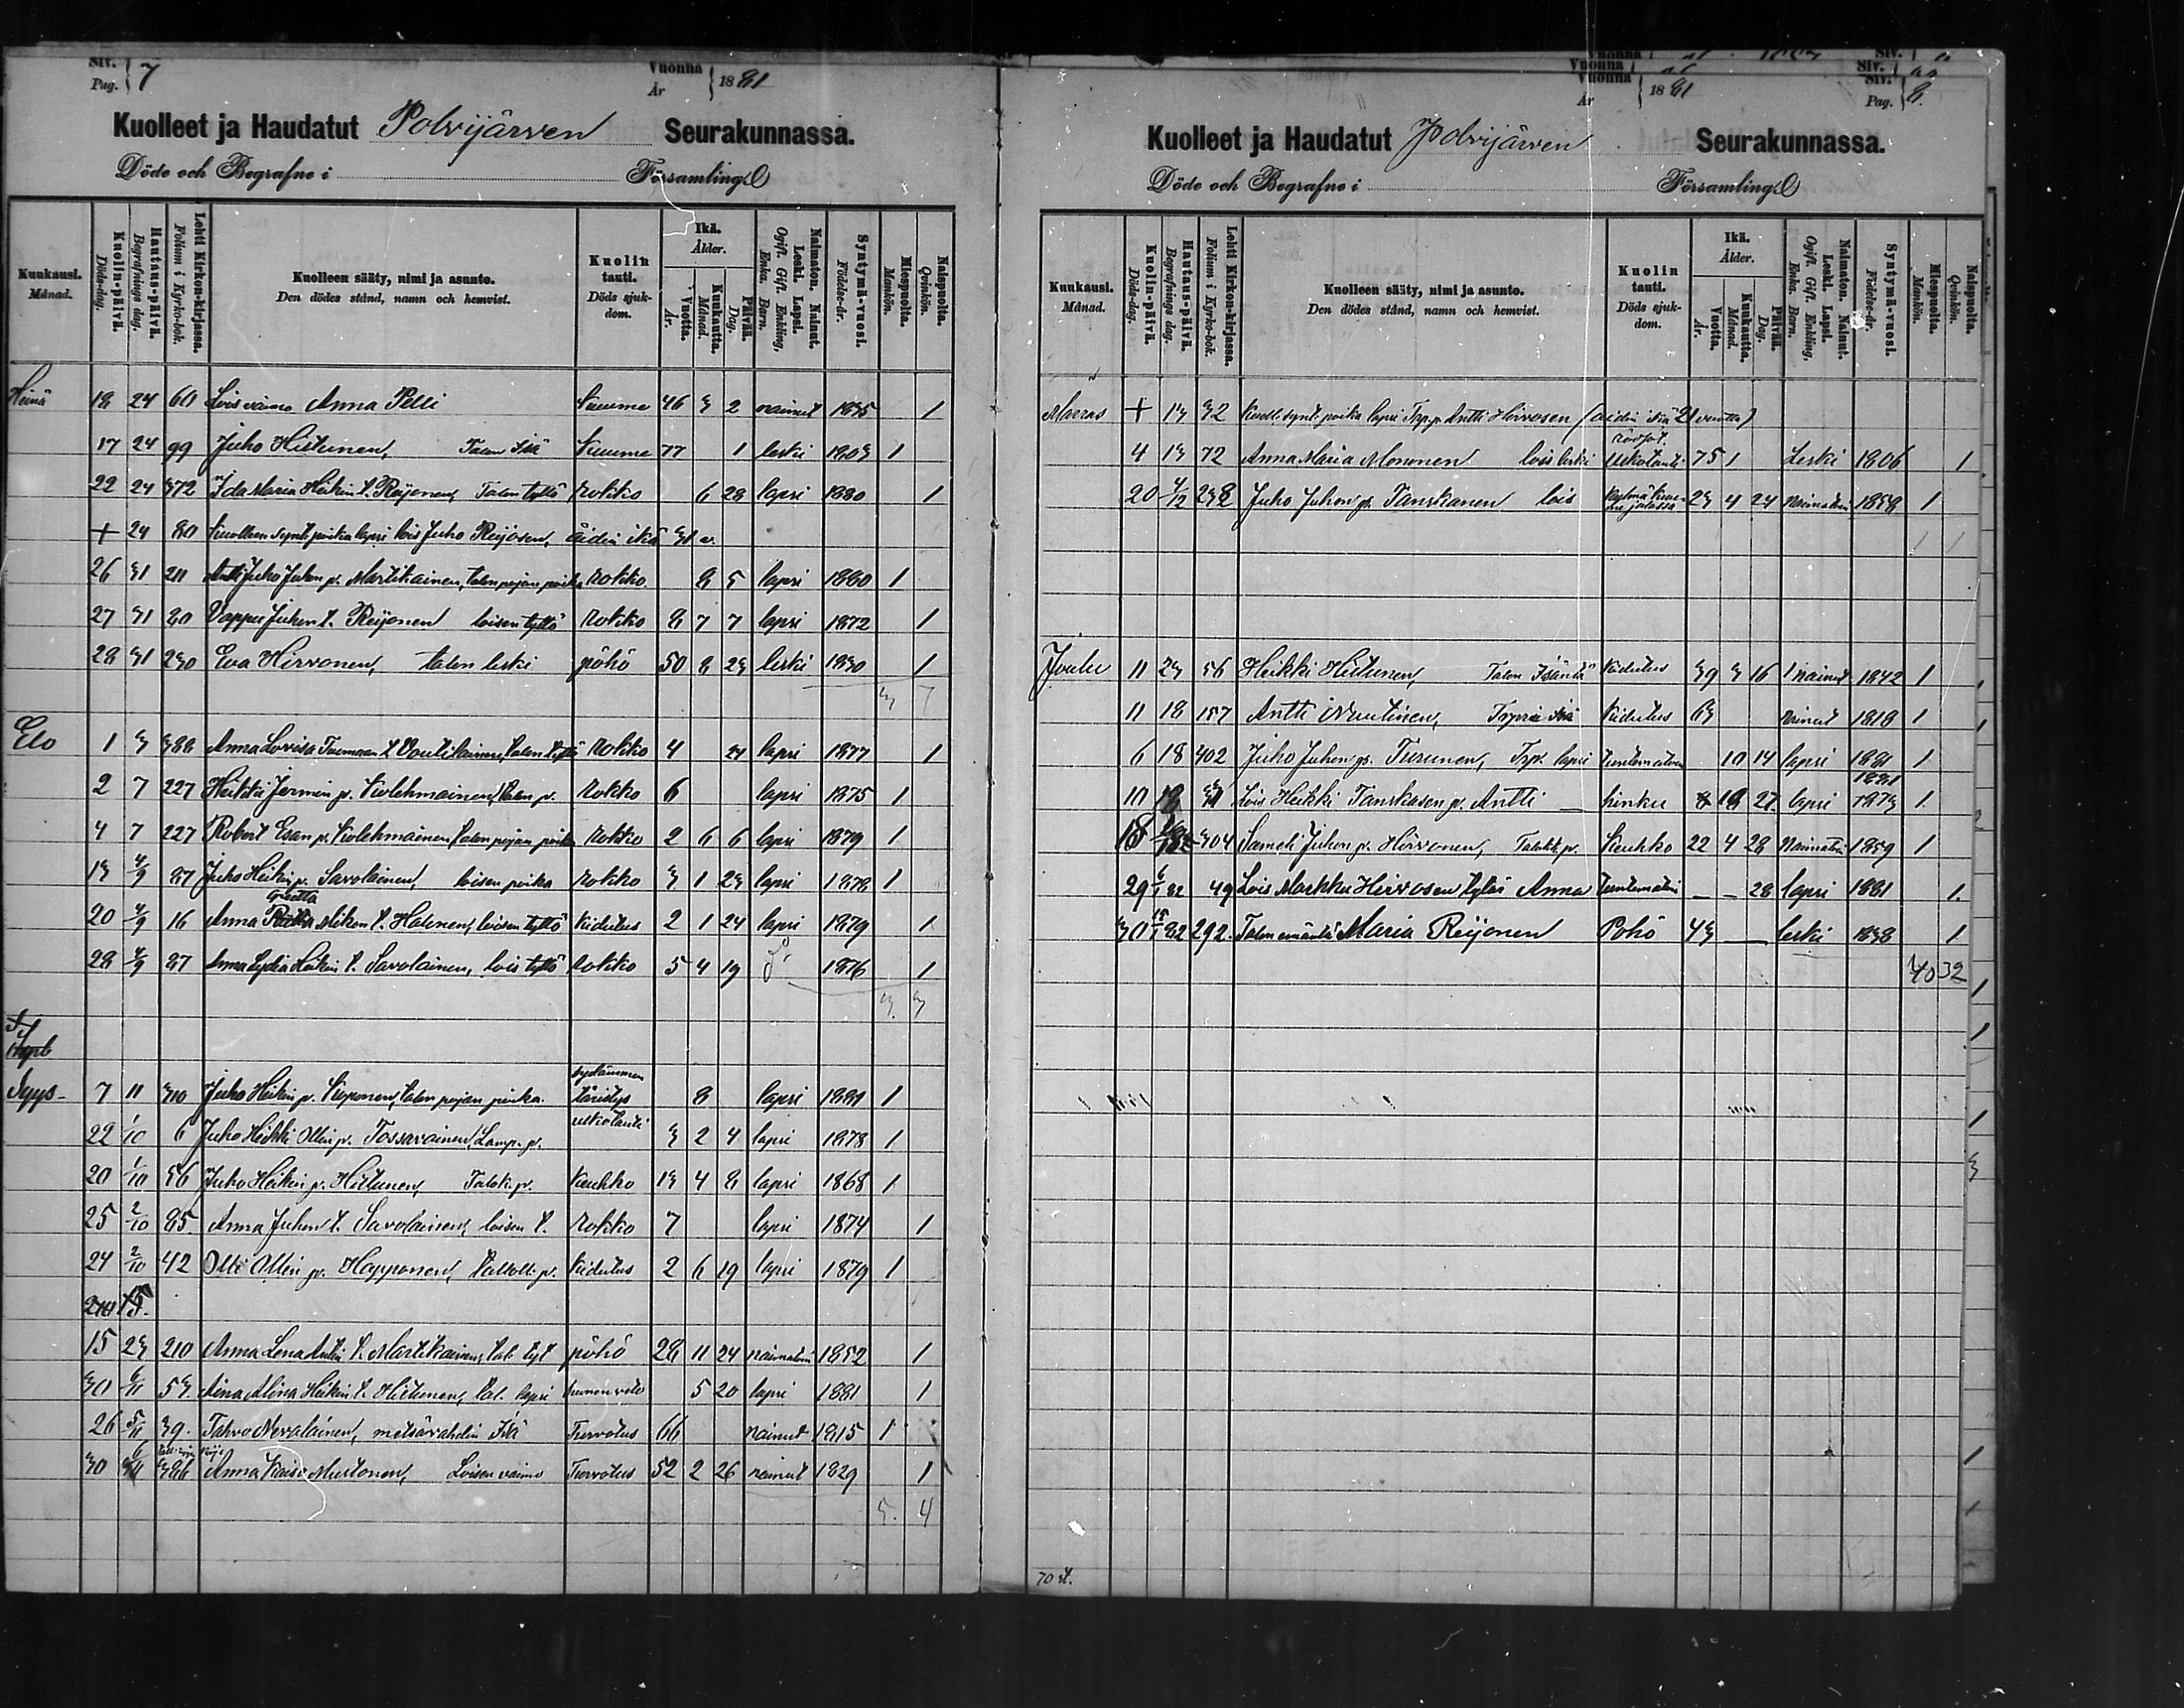 Siv. Pag. 7 Vuonna År 1881
Kuolleet ja Haudatut Polvijärven Seurakunnassa.
Döde och Begrafne i Församling.
Kuukausi. Månad. Kuolin-päivä. Döds-dag. Hautaus-päivä. Begrafnings dag. Lehti Kirkon-kirjassa. Folium i Kyrko-bok. Kuolleen sääty, nimi ja asunto. Den dödes stånd, namn och hemvist. Kuolin tauti. Döds sjukdom. Ikä. Ålder. Vuotta. År. Kuukautta. Månad. Päivää. Dag. Naimaton. Nainut. Leski. Lapsi. Ogift. Gift. Enkling, Enka. Barn. Syntymä-vuosi. Födelse-år. Miespuolta. Mankön. Naispuolta. Qvinkön.
Heinä 18 24 60 Lois vaimo Anna Pelli Kuume 46 3 2 nainut 1835 1
17 24 99 Juho Hiltunen, Talon Isä Kuume 77 1 leski 1803 1
22 24 372 Ida Maria Heikin t. Reijonen, Talon tyttö rokko 6 28 lapsi 1880 1
+ 24 80 Kuolleen synt. poika lapsi lois Juho Reijosen, äidin ikä 31 v.
26 31 211 Antti Juho Juhon p. Martikainen, talon pojan poika rokko 8 5 lapsi 1880 1
27 31 80 Vappu Juhon t. Reijonen loisen tyttö rokko 8 7 7 lapsi 1872 1
28 31 230 Eva Hirvonen, talon leski pöhö 50 8 23 leski 1830 1
3 7
Elo 1 3 388 Anna Lovisa Tuomaan t Voutilainen, talon tyttö rokko 4 lapsi 1877 1
2 7 227 Heikki Jermin p. Kolehmainen, talon p. rokko 6 lapsi 1875 1
4 7 227 Robert Esan p. Kolehmainen, talon pojan poika rokko 2 6 6 lapsi 1879 1
13 4/9 87 Juho Heikin p. Savolainen, loisen poika rokko 3 1 23 lapsi 1878 1
Greetta
20 4/9 16 Anna Mikon t. Halonen, loisen tyttö kidutus 2 1 24 lapsi 1879 1
28 4/9 87 Anna Lydia Heikin t. Savolainen, lois tyttö rokko 5 4 19 1876 1
3. 3
Syys- 7 11 310 Juho Heikin p. Kopponen, talon pojan poika. sydämmen täristys 8 lapsi 1881 1
22 1/10 6 Juho Heikki Ollin p. Tossavainen, Lamp. p. uskotauti 3 2 4 lapsi 1878 1
20 1/10 56 Juho Heikin p. Hiltunen, Talok. p. Keuhko 13 4 8 lapsi 1868 1
25 2/10 85. Anna Juhon t. Savolainen, loisen t. rokko 7 lapsi 1874 1
24 2/10 42 Olli Ollin p. Happonen, talloll. p. kidutus 2 6 19 lapsi 1879 1
15 23 210 Anna Lena Antin t. Martikainen, tal. tyt pöhö 28 11 24 naimatoin 1852 1
30 6/11 53. Aina Alina Heikin t. Hiltunen, tal. lapsi 5 20 lapsi 1881 1
26 5/11 39. Tahvo Nevalainen, metsävahdin Isä Turvotus 66 nainut 1815 1
30 6/11 386 Anna Kaisa Mustonen, Loisen vaimo Turvotus 52 2 26 nainut 1829 1
5. 4
Vuonna År 1881 Siv. Pag. 8.
Kuolleet ja Haudatut Polvijärven Seurakunnassa.
Döde och Begrafne i Församling.
Kuukausi. Månad. Kuolin-päivä. Döds-dag. Hautaus-päivä. Begrafnings dag. Lehti Kirkon-kirjassa. Folium i Kyrko-bok. Kuolleen sääty, nimi ja asunto. Den dödes stånd, namn och hemvist. Kuolin tauti. Döds sjukdom. Ikä. Ålder. Vuotta. År. Kuukautta. Månad. Päivää. Dag. Naimaton. Nainut. Leski. Lapsi. Ogift. Gift. Enkling, Enka. Barn. Syntymä-vuosi. Födelse-år. Miespuolta. Mankön. Naispuolta. Qvinkön.
Marras + 13 32 Kuoll. synt. poika lapsi Trp. p. Antti Hirvosen (äidin ikä 21 vuotta)
4 13 72 Anna Maria Mononen lois leski Uskotauti 75 1 Leski 1806 1
20 4/12 238 Juho Juhon p. Tanskanen lois 23 4 24 Naimatoin 1858 1
Joulu 11 23 56 Heikki Hiltunen, Talon Isäntä Kidutus 39 3 16 nainut 1842 1
11 18 157 Antti Nuutinen, Torpan isä Kidutus 63 nainut 1818 1
6 18 402 Juho Juhon p. Turunen, Trp. lapsi Tuntematoin 10 14 lapsi 1881 1
10 18 31 Lois Heikki Tanskasen p. Antti — hinku 18 27 lapsi 1881 1.
18 304 Sameli Juhon p. Hirvonen, Talokk. p. Keuhko 22 4 28 Naimatoin 1859 1
29 6/1 82 49 Lois Markku Hirvosen tytär Anna Tuntematoin — — 28 lapsi 1881 1.
30 15/1 82 292. Talon emäntä Maria Reijonen Pöhö 43 — leski 1838 1
40 32
70 st.